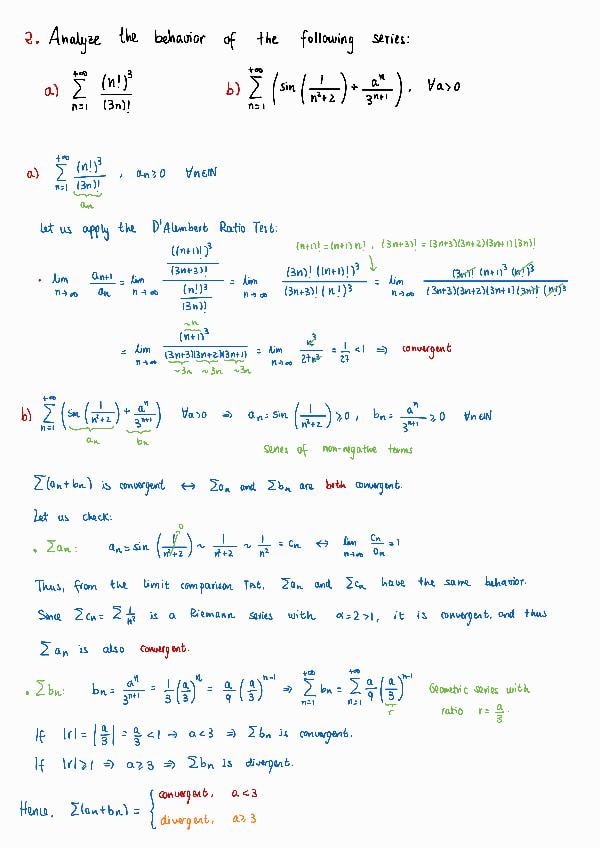 2. Analyze the behavior of the following series:
a) $\sum_{n=1}^{+\infty} \frac{(n!)^3}{(3n)!}$ b) $\sum_{n=1}^{+\infty} \left( \sin\left(\frac{1}{n^2+2}\right) + \frac{a^n}{3^{n+1}} \right)$, ∀a>0
a) $\sum_{n=1}^{+\infty} \underbrace{\frac{(n!)^3}{(3n)!}}_{a_n}$, $a_n \geq 0$ ∀n∈ℕ
Let us apply the D'Alembert Ratio Test:
(n+1)! = (n+1) n! , (3n+3)! = (3n+3)(3n+2)(3n+1)(3n)!
• $\lim_{n\to\infty} \frac{a_{n+1}}{a_n} = \lim_{n\to\infty} \frac{\frac{((n+1)!)^3}{(3n+3)!}}{\frac{(n!)^3}{(3n)!}} = \lim_{n\to\infty} \frac{(3n)! ((n+1)!)^3}{(3n+3)! (n!)^3} = \lim_{n\to\infty} \frac{(3n)! (n+1)^3 (n!)^3}{(3n+3)(3n+2)(3n+1)(3n)! (n!)^3}$
$= \lim_{n\to\infty} \frac{(\overbrace{n+1}^{\sim n})^3}{\underbrace{(3n+3)}_{\sim 3n}\underbrace{(3n+2)}_{\sim 3n}\underbrace{(3n+1)}_{\sim 3n}} = \lim_{n\to\infty} \frac{n^3}{27n^3} = \frac{1}{27} < 1$ ⇒ convergent
b) $\sum_{n=1}^{+\infty} \left( \underbrace{\sin\left(\frac{1}{n^2+2}\right)}_{a_n} + \underbrace{\frac{a^n}{3^{n+1}}}_{b_n} \right)$ ∀a>0 ⇒ $a_n = \sin\left(\frac{1}{n^2+2}\right) \geq 0$, $b_n = \frac{a^n}{3^{n+1}} \geq 0$ ∀n∈ℕ
series of non-negative terms
Σ(an+bn) is convergent ↔ Σan and Σbn are both convergent.
Let us check:
• Σan: $a_n = \sin\left(\frac{1}{n^2+2}\right)^{\nearrow 0} \sim \frac{1}{n^2+2} \sim \frac{1}{n^2} = c_n$ ↔ $\lim_{n\to\infty} \frac{c_n}{a_n} = 1$
Thus, from the limit comparison test, Σan and Σcn have the same behavior.
Since Σcn = Σ $\frac{1}{n^2}$ is a Riemann series with α=2>1, it is convergent, and thus
Σan is also convergent.
• Σbn: $b_n = \frac{a^n}{3^{n+1}} = \frac{1}{3}\left(\frac{a}{3}\right)^n = \frac{a}{9}\left(\frac{a}{3}\right)^{n-1}$ ⇒ $\sum_{n=1}^{+\infty} b_n = \sum_{n=1}^{+\infty} \frac{a}{9}\underbrace{\left(\frac{a}{3}\right)}_{r}{}^{n-1}$ Geometric series with
ratio $r = \frac{a}{3}$.
If $|r| = \left|\frac{a}{3}\right| = \frac{a}{3} < 1$ → a<3 ⇒ Σbn is convergent.
If |r|≥1 ⇒ a≥3 ⇒ Σbn is divergent.
Hence, Σ(an+bn) = { convergent, a<3
divergent, a≥3